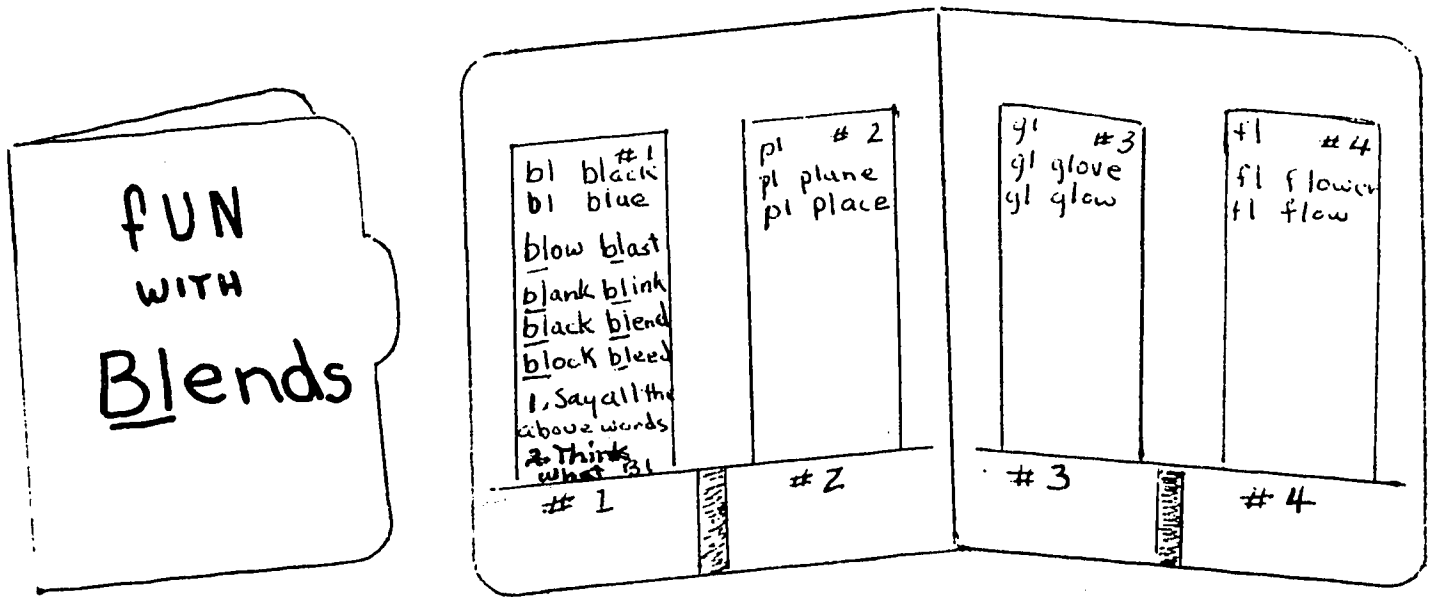 fUN
WITH
Blends
#1
bl black
bl blue
blow blast
blank blink
black blend
block bleed
1. Say all the
above words
2. Think
what Bl
#1
pl #2
pl plane
pl place
#2
gl #3
gl glove
gl glow
#3
fl #4
fl flower
fl flow
#4